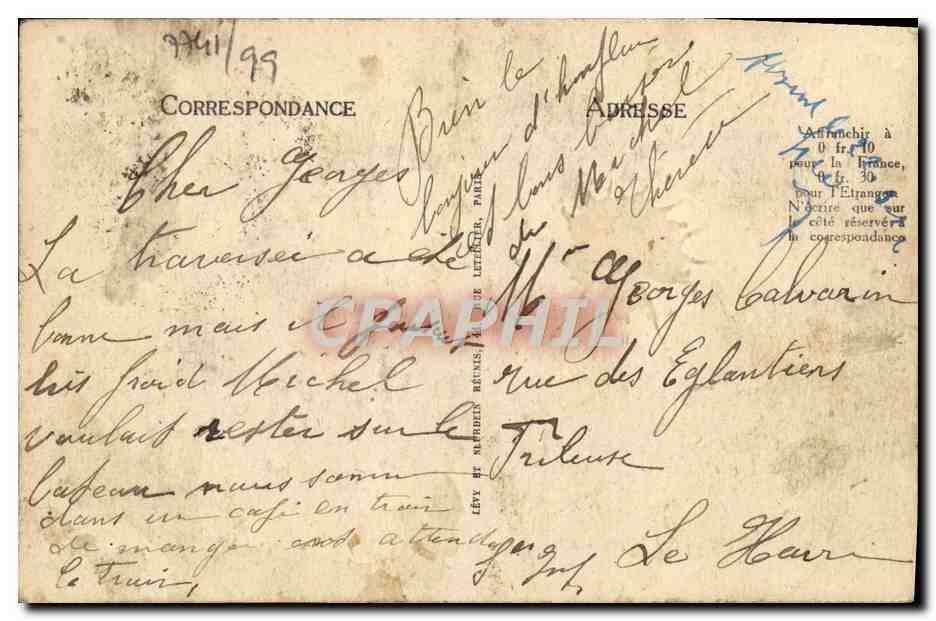 7741/99
CORRESPONDANCE
Cher Georges
La traversée a été
bonne mais il faisait
très froid Michel
voulait rester sur le
bateau nous somm
dans un café en train
de mange attend
le train,
Bien le
bonjour d'honfleur
et bons baiser
de Michel
Thérèse
LÉVY ET NEURDEIN RÉUNIS, 44 RUE LETELLIER, PARIS
ADRESSE
Affranchir à
0 fr. 10
pour la France,
0 fr. 30
pour l'Etranger.
N'écrire que sur
le côté réservé à
la correspondance
Mr Georges Calvarin
rue des Eglantiers
Frileuse
Le Havre
Sne Inf
CPAPHIL